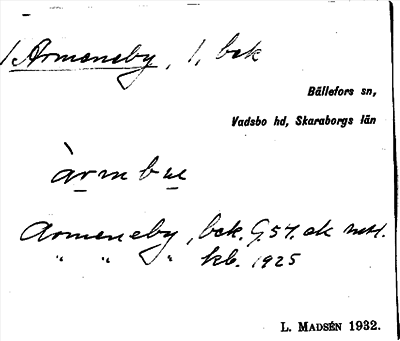 /Armeneby, 1, bek
Bällefors sn,
Vadsbo hd, Skaraborgs län
àrmbʉe
Armeneby, bek. G.54. ek
" " " kb. 1925
L. MADSÉN 1932.